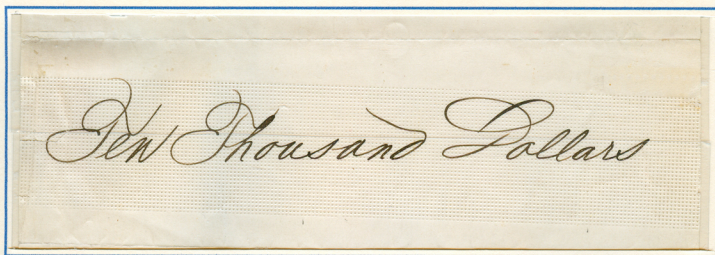 Ten Thousand Dollars